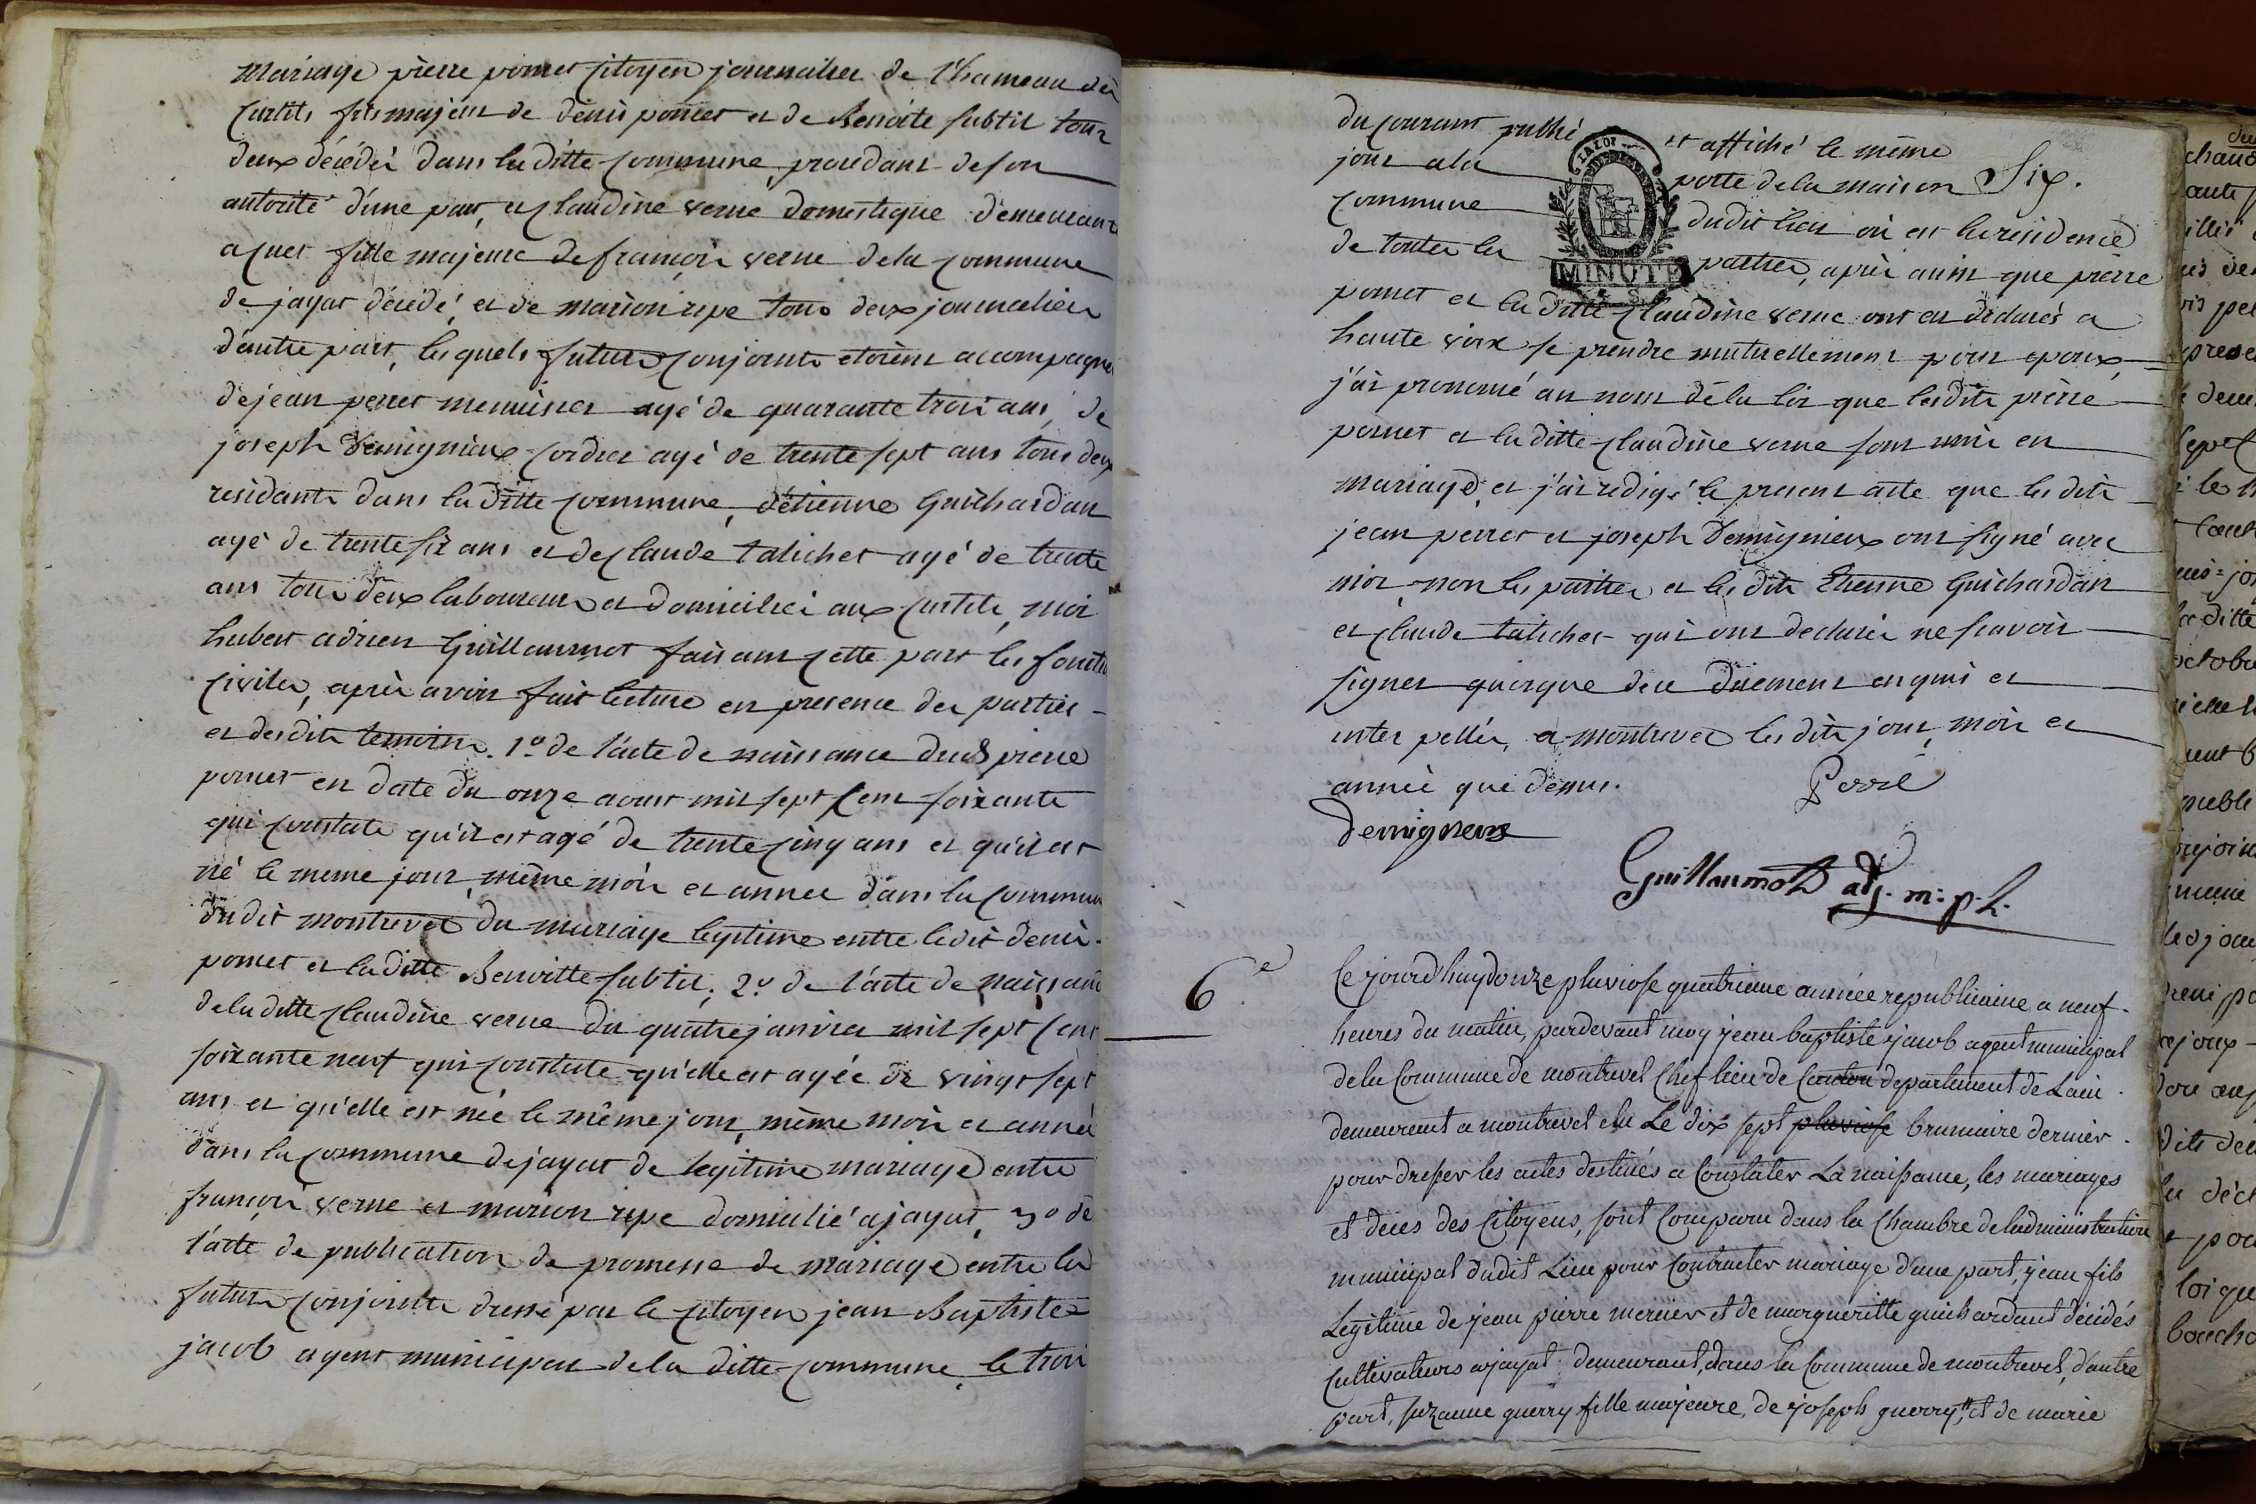 mariage pierre pomet citoyen journalier de l'hameau des
Curtils fils majeur de denis pomet et de Benoite subtil tous
deux décédés dans la ditte commune procedant de son
autorité d'une part, et Claudine verne domestique demeurant
a Cuet fille majeure de françois verne de la commune
de jayat décédé, et de marion repe tous deux journaliers
d'autre part, lesquels futurs conjoints etoient accompagnés
de jean perret menuisier agé de quarante trois ans, de
joseph Demignieux cordier agé de trente sept ans tous deux
residants dans la ditte commune, d'étienne Guichardan
agé de trente six ans et de Claude talichet agé de trente
ans tous deux laboureurs et domiciliés aux Curtils, moi
hubert adrien Guillaumot faisant cette part les fonctions
civiles, après avoir fait lecture en presence des parties
et desdits temoins. 1º de l'acte de naissance dud pierre
pomet en date du onze aoust mil sept cent soixante
qui constate qu'il est agé de trente cinq ans et qu'il est
né le meme jour, même mois et année dans la commune
dudit montrevel du mariage legitime entre ledit denis
pomet et la ditte Benoitte subtil, 2º de l'acte de naissance
de la ditte Claudine verne du quatre janvier mil sept cent
soixante neuf qui constate qu'elle est agée de vingt sept
ans et qu'elle est née le même jour, même mois et année
dans la commune de jayat de legitime mariage entre
françois verne et marion repe domicilié a jayat, 3º de
l'acte de publication de promesse de mariage entre les
futurs conjoints dressé par le citoyen jean Baptiste
jacob agent municipal de la ditte commune le trois
du courant publié et affiché le même
jour a la porte de la maison Six.
commune dudit lieu où est la residence
de toutes les parties, après aussi que pierre
MINUTE
pomet et la ditte Claudine verne ont eu déclarés a
haute voix se prendre mutuellement pour epoux,
j'ai prononcé au nom de la loi que lesdits pierre
pomet et la ditte Claudine verne sont unis en
mariage, et j'ai redigé le present acte que les dits
jean perret et joseph Demignieux ont signé avec
moi, non les parties et les dits Etienne Guichardan
et Claude talichet qui ont declarés ne scavoir
signer quoique de ce duement enquis et
interpellés, a montrevel les dits jour, mois et
année que dessus. Peré
Demigneux
Guillaumot adj. m: p. h.
6e
Ce jourd'huy douze pluviose quatrieme année republicaine a neuf
heures du matin, pardevant moy jean baptiste jacob agent municipal
de la Commune de montrevel Chef lieu de Canton departement de Lain
demeurant a montrevel elu Le dix sept pluviose brumaire dernier
pour dresser les actes destinés a Constater La naissance, les mariages
et deces des Citoyens, sont Comparu dans la Chambre de ladministration
municipal dudit Lieu pour Contracter mariage d'une part, jean fils
Legitime de jean pierre mernier et de margueritte guichardant décédés
Cultivateurs a jayat, demeurant dans la Commune de montrevel, d'autre
part, suzanne guerry fille majeure, de joseph guerry, et de marie